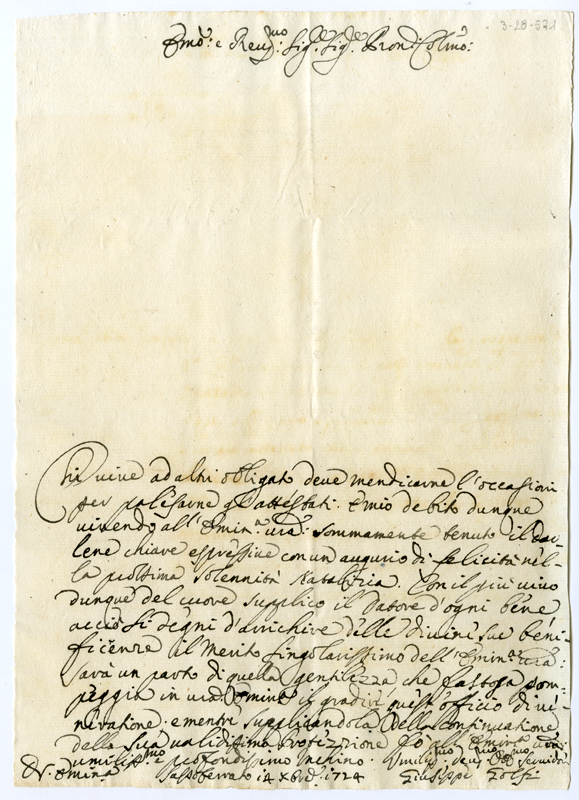 3-28-571
Emō: e Reuᵐᵒ: Sigʳᵉ: Sigʳᵉ: Pron Colmō:
Chi vive ad altri obligato deve mendicarne l'occasioni
per palesarne gl'attestati. È mio debito dunque
vivendo all'Eminᵃ: vrā: sommamente tenuto il dar-
lene chiare espressive con un augurio di felicità nel-
la prossima solennità Natalizia. Con il più vivo
dunque del cuore supplico il Datore d'ogni bene
acciò si degni d'arrichire delle divine sue beni-
ficenze il merito singolarissimo dell'Eminᶻᵃ: vrā:
sarà un parto di quella gentilezza che fastosa pom-
peggia in vrā: Eminᶻᵃ il gradire quest'officio di ve-
neratione. e mentre supplicandola della continuatione
della sua validissima Protezzione fò all'Eminᶻᵃ vrā:
umilissᵐᵒ e profondissimo inchino.
D. V. Eminᶻᵃ
Sassoferrato 14 Xbrē: 1724
Umilissᵐᵒ: devᵐᵒ: Obᵐᵒ servidore
Giuseppe Zolfi